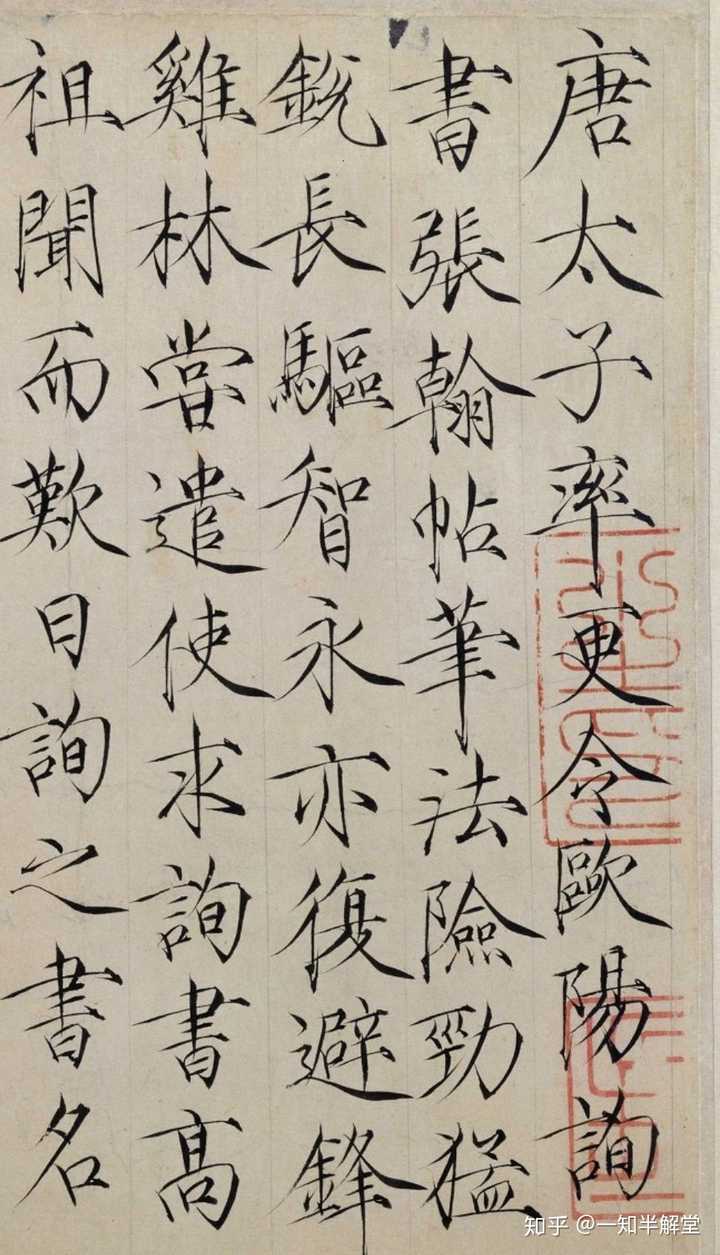 唐太子率更令歐陽詢
書張翰帖筆法險勁猛
銳長驅智永亦復避鋒
雞林嘗遣使求詢書高
祖聞而歎曰詢之書名
知乎 @一知半解堂